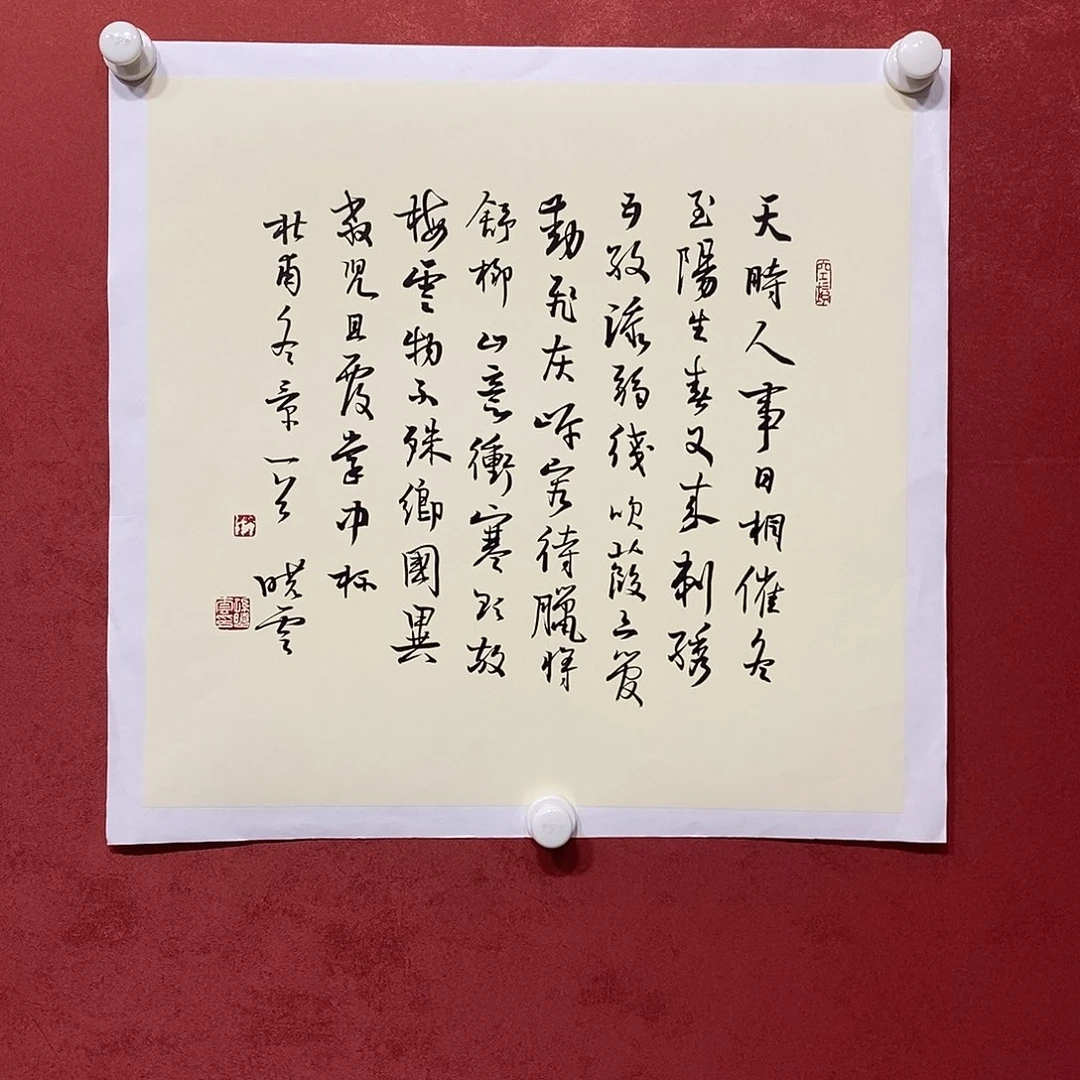 天時人事日相催冬
至陽生春又来刺繡
五紋添弱綫吹葭六管
動飛灰岸容待臘將
舒柳山意衝寒欲放
梅雲物不殊鄉國異
教兒且覆掌中杯
杜甫冬景一首
曉雲